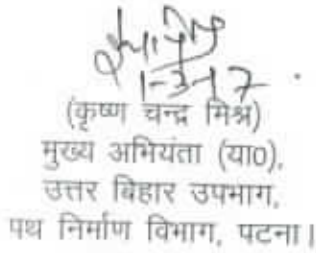 1-3-17
(कृष्ण चन्द्र मिश्र)
मुख्य अभियंता (या0),
उत्तर बिहार उपभाग,
पथ निर्माण विभाग, पटना।